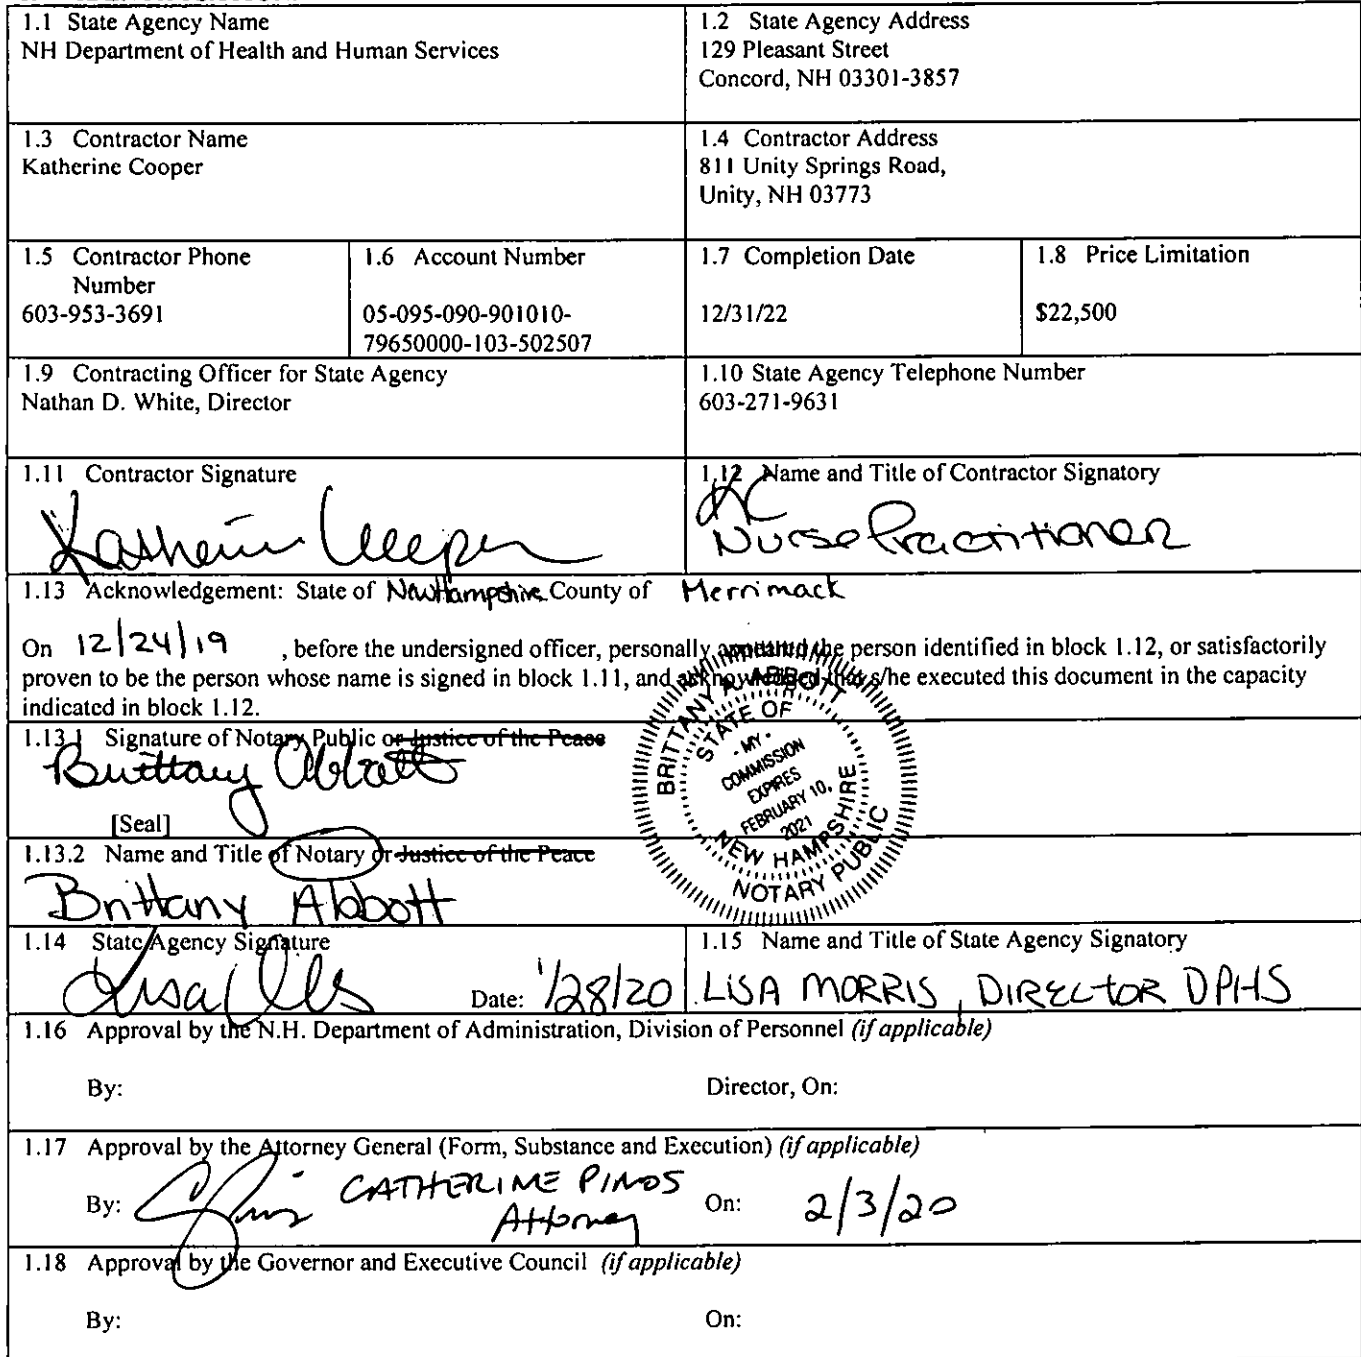 1.1 State Agency Name
NH Department of Health and Human Services
1.2 State Agency Address
129 Pleasant Street
Concord, NH 03301-3857
1.3 Contractor Name
Katherine Cooper
1.4 Contractor Address
811 Unity Springs Road,
Unity, NH 03773
1.5 Contractor Phone
Number
603-953-3691
1.6 Account Number
05-095-090-901010-
79650000-103-502507
1.7 Completion Date
12/31/22
1.8 Price Limitation
$22,500
1.9 Contracting Officer for State Agency
Nathan D. White, Director
1.10 State Agency Telephone Number
603-271-9631
1.11 Contractor Signature
Katherine Cooper
1.12 Name and Title of Contractor Signatory
KC
Nurse Practitioner
1.13 Acknowledgement: State of New Hampshire County of Merrimack
On 12/24/19 , before the undersigned officer, personally appeared the person identified in block 1.12, or satisfactorily
proven to be the person whose name is signed in block 1.11, and acknowledged that s/he executed this document in the capacity
indicated in block 1.12.
1.13.1 Signature of Notary Public or Justice of the Peace
Brittany Abbott
[Seal]
BRITTANY A. ABBOTT
STATE OF
- MY -
COMMISSION
EXPIRES
FEBRUARY 10,
2021
NEW HAMPSHIRE
NOTARY PUBLIC
1.13.2 Name and Title of Notary or Justice of the Peace
Brittany Abbott
1.14 State Agency Signature
Lisa
Date: 1/28/20
1.15 Name and Title of State Agency Signatory
LISA MORRIS, DIRECTOR DPHS
1.16 Approval by the N.H. Department of Administration, Division of Personnel (if applicable)
By: Director, On:
1.17 Approval by the Attorney General (Form, Substance and Execution) (if applicable)
By: CATHERINE PINOS
Attorney On: 2/3/20
1.18 Approval by the Governor and Executive Council (if applicable)
By: On: